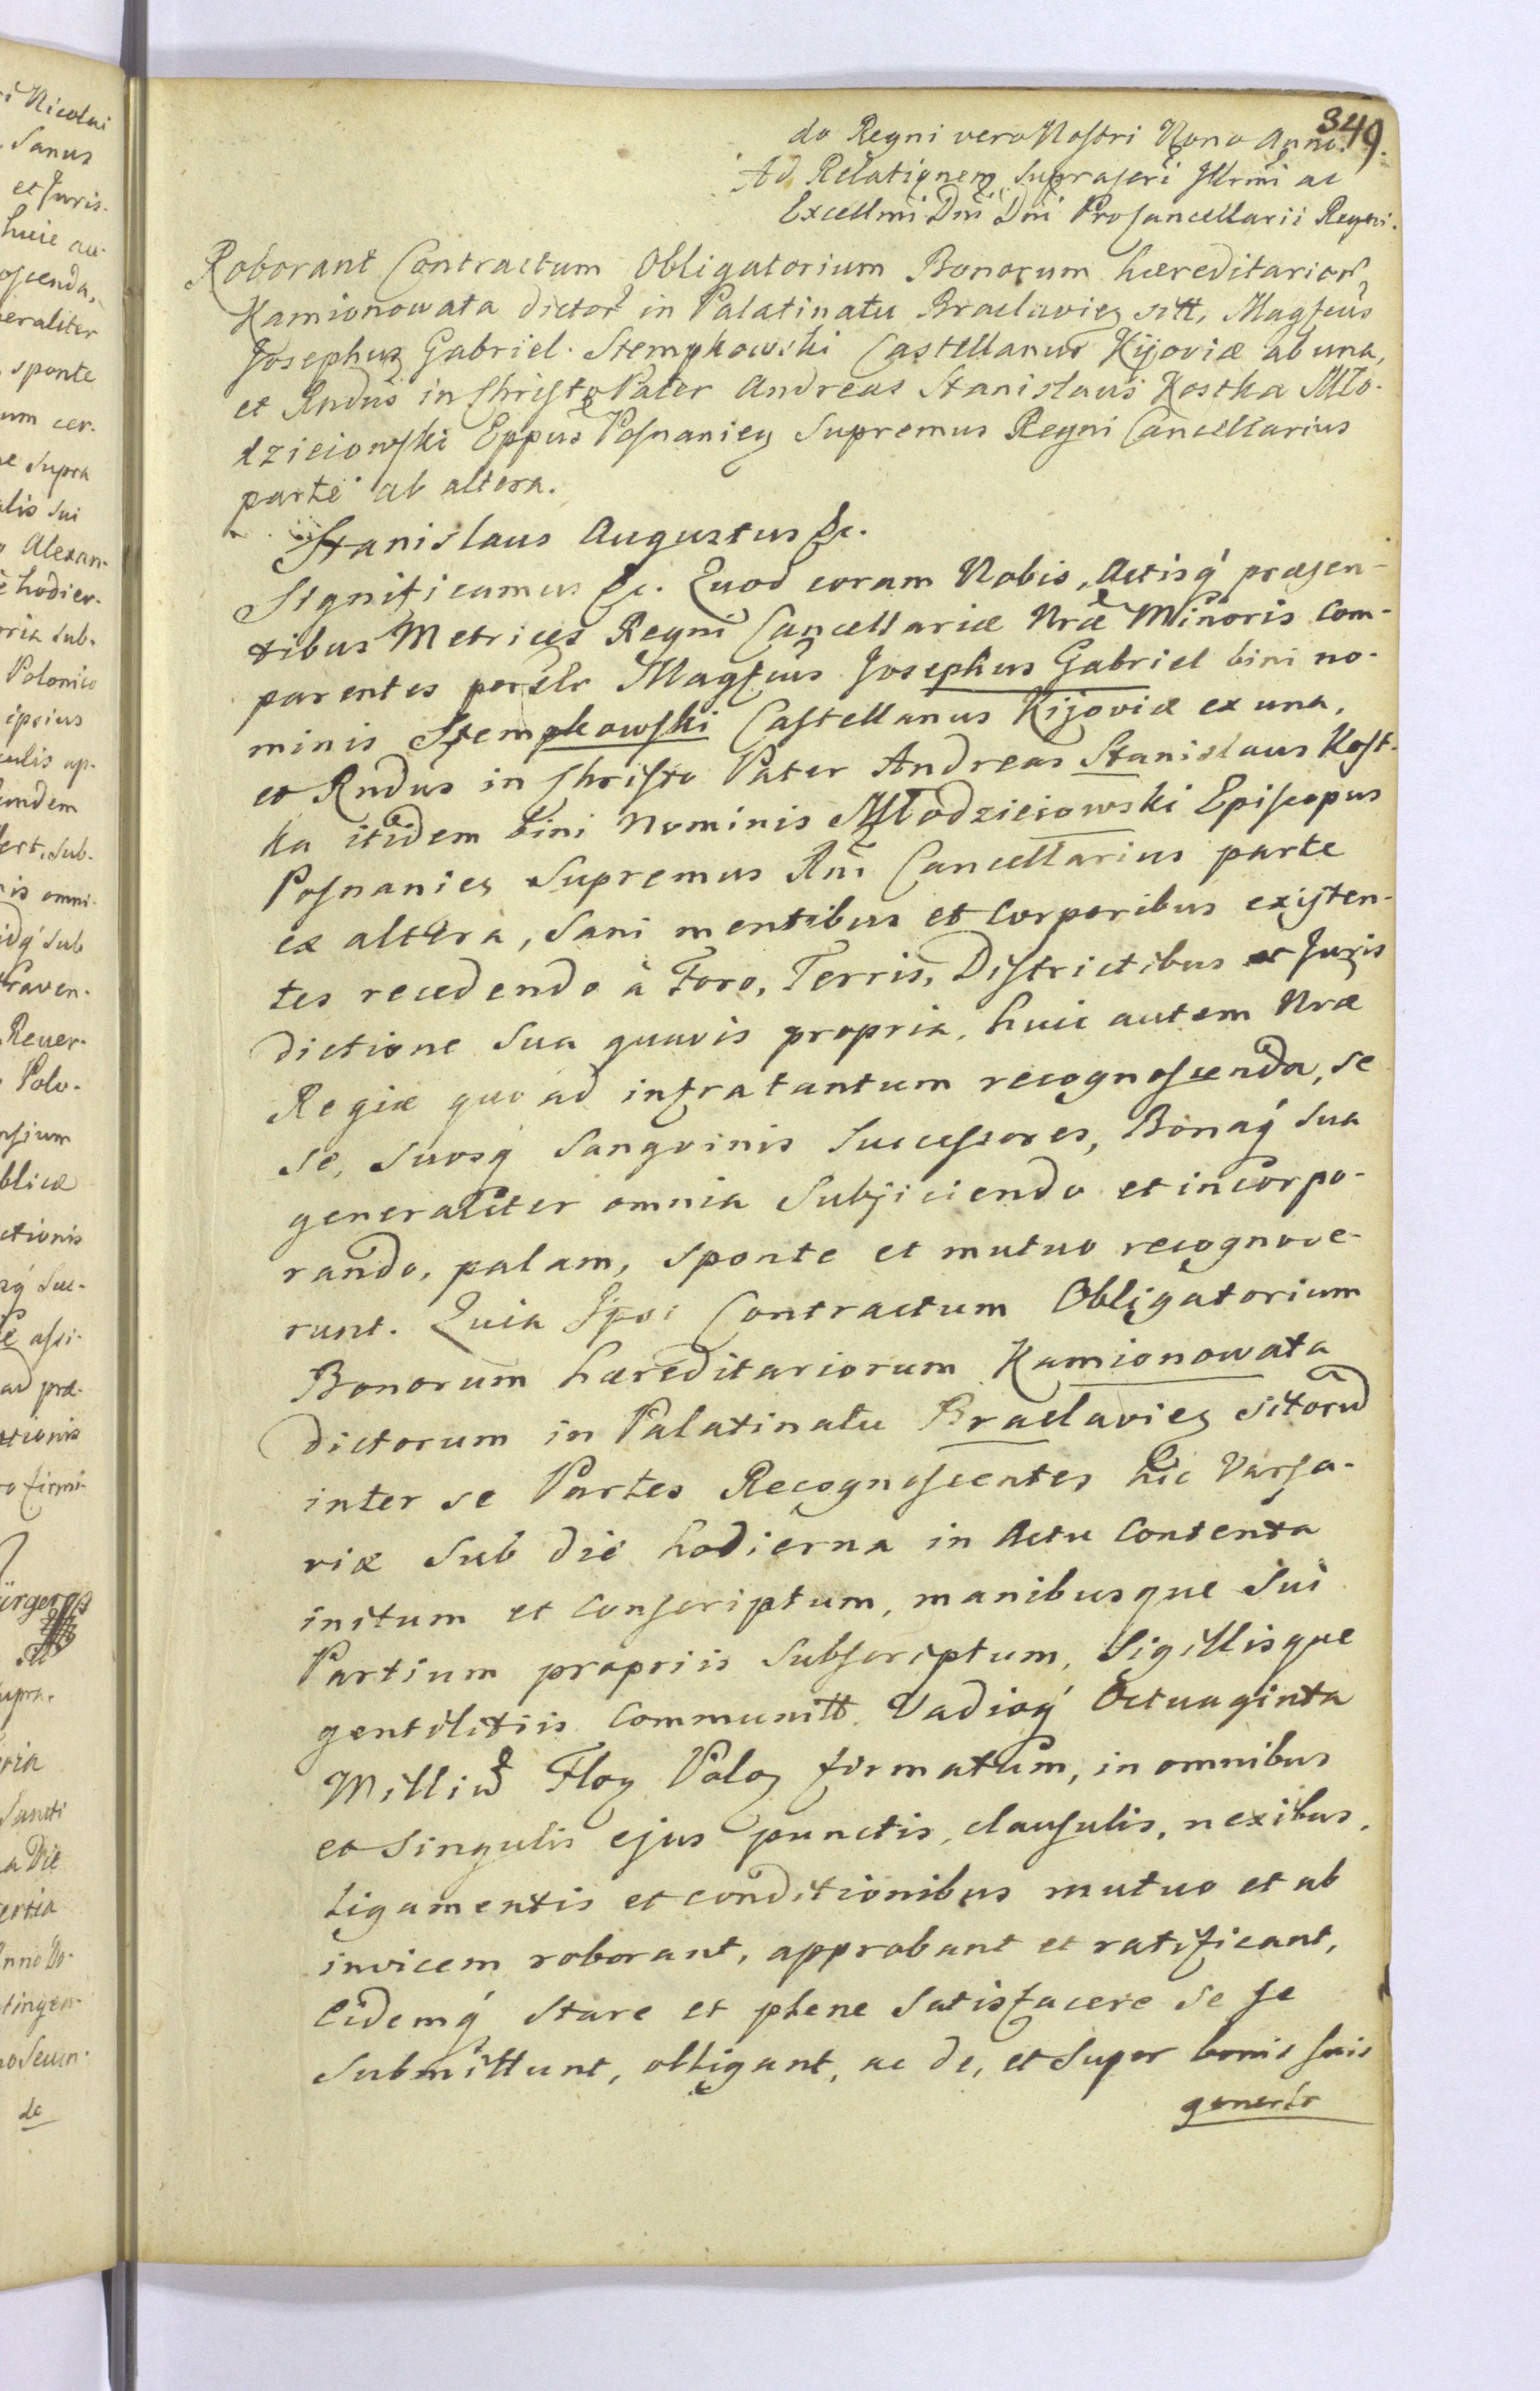 i Nicolai
Sanus
et Juris-
huic au-
oscenda,
neraliter
sponte
um cer-
e Supra
alis sui
Alexan-
hodier-
oria sub-
Polonico
iprius
culis ap-
undem
sub-
is omni-
idq́ sub
traven-
Rever-
Polo-
nsium
blicæ
ctionis
sq́ suc-
assi-
ad præ-
ationis
firmi-
supra.
oria
Sancti
a Die
ertia
Anno Do-
tingen-
de
349.
do Regni vero Nostri Nono Anno.
Ad Relationem suprascri Illrmi ac
Excellmi Dni Dni Procancellarii Regni.
Roborant Contractum Obligatorium Bonorum hæreditarior
Kamionowata dictor in Palatinatu Braclavien sitt, Magfcus
Josephus Gabriel Stempkowski Castellanus Kijoviæ ab una,
et Rndus in Christo Pater Andreas Stanislaus Kostka Mło-
dzieiowski Eppus Posnanien Supremus Regni Cancellarius
parte ab altera.
Stanislaus Augustus &c.
Significamus &c. Quod coram Nobis, Actisq́ præsen-
tibus Metrices Regni Cancellariæ Nræ Minoris Com-
parentes perslr Magfcus Josephus Gabriel bini no-
minis Stempkowski Castellanus Kijoviæ ex una,
et Rndus in Christo Pater Andreas Stanislaus Kost-
ka itidem bini Nominis Młodzieiowski Episcopus
Posnanien Supremus Rni Cancellarius parte
ex altera, Sani mentibus et Corporibus existen-
tes recedendo à Foro, Terris, Districtibus et Juris
dictione Sua quavis propria, huic autem Nræ
Regiæ quoad infra tantum recognoscenda, se
se, Suosq́ Sangvinis Successores, Bonaq́ Sua
generaliter omnia Subjiciendo et incorpo-
rando, palam, sponte et mutuo recognove-
runt. Quia Ipsi Contractum Obligatorium
Bonorum hæreditariorum Kamionowata
dictorum in Palatinatu Braclavien sitorū
inter se Partes Recognoscentes hic Varsa-
viæ Sub die hodierna in Actu Contenta
initum et conscriptum, manibusque Sui
Partium propriis Subscriptum, Sigillisque
gentilitiis Communitt. Vadioq́ Octuaginta
Milliū Flon Polon firmatum, in omnibus
et Singulis ejus punctis, clausulis, nexibus,
ligamentis et conditionibus mutuo et ab
invicem roborant, approbant et ratificant,
Eidemq́ Stare et plene Satisfacere se se
Submittunt, obligant, ac de, et Super bonis suis
generlr